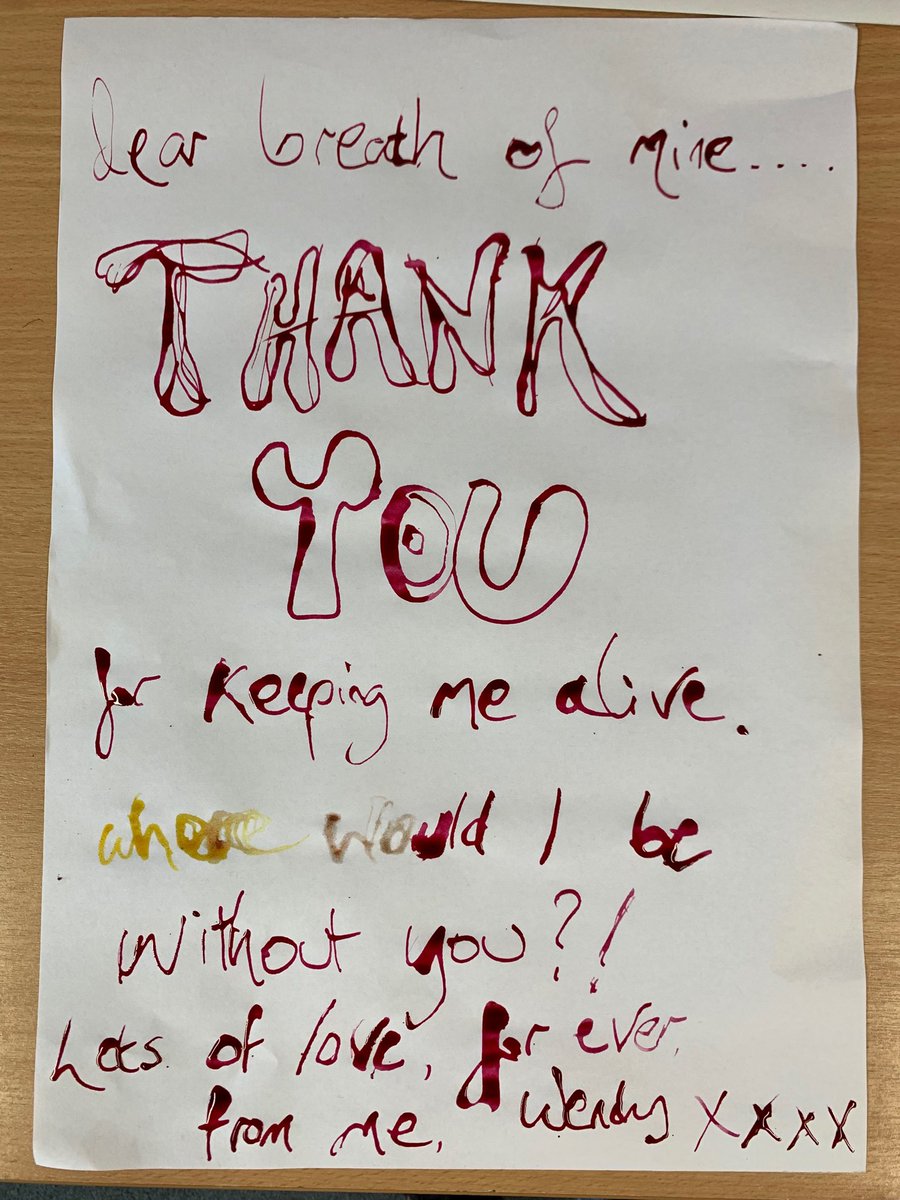 dear breath of mine....
THANK
YOU
for keeping me alive.
where would I be
without you?!
Lots of love, for ever,
from me, Wendy XXXX